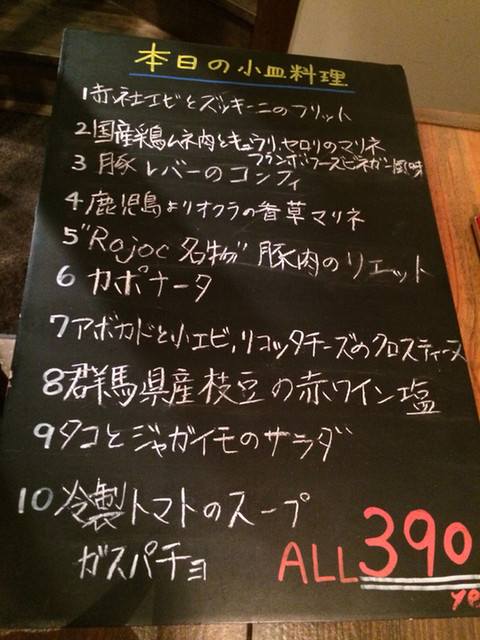 本日の小皿料理
1 赤社エビとズッキーニのフリット
2 国産鶏ムネ肉とキュウリ、セロリのマリネ
フランボワーズビネガー風味
3 豚レバーのコンフィ
4 鹿児島よりオクラの香草マリネ
5 "Rojoc名物" 豚肉のリエット
6 カポナータ
7 アボカドと小エビ,リコッタチーズのクロスティーヌ
8 群馬県産枝豆の赤ワイン塩
9 タコとジャガイモのサラダ
10 冷製トマトのスープ
ガスパチョ
ALL 390
yen